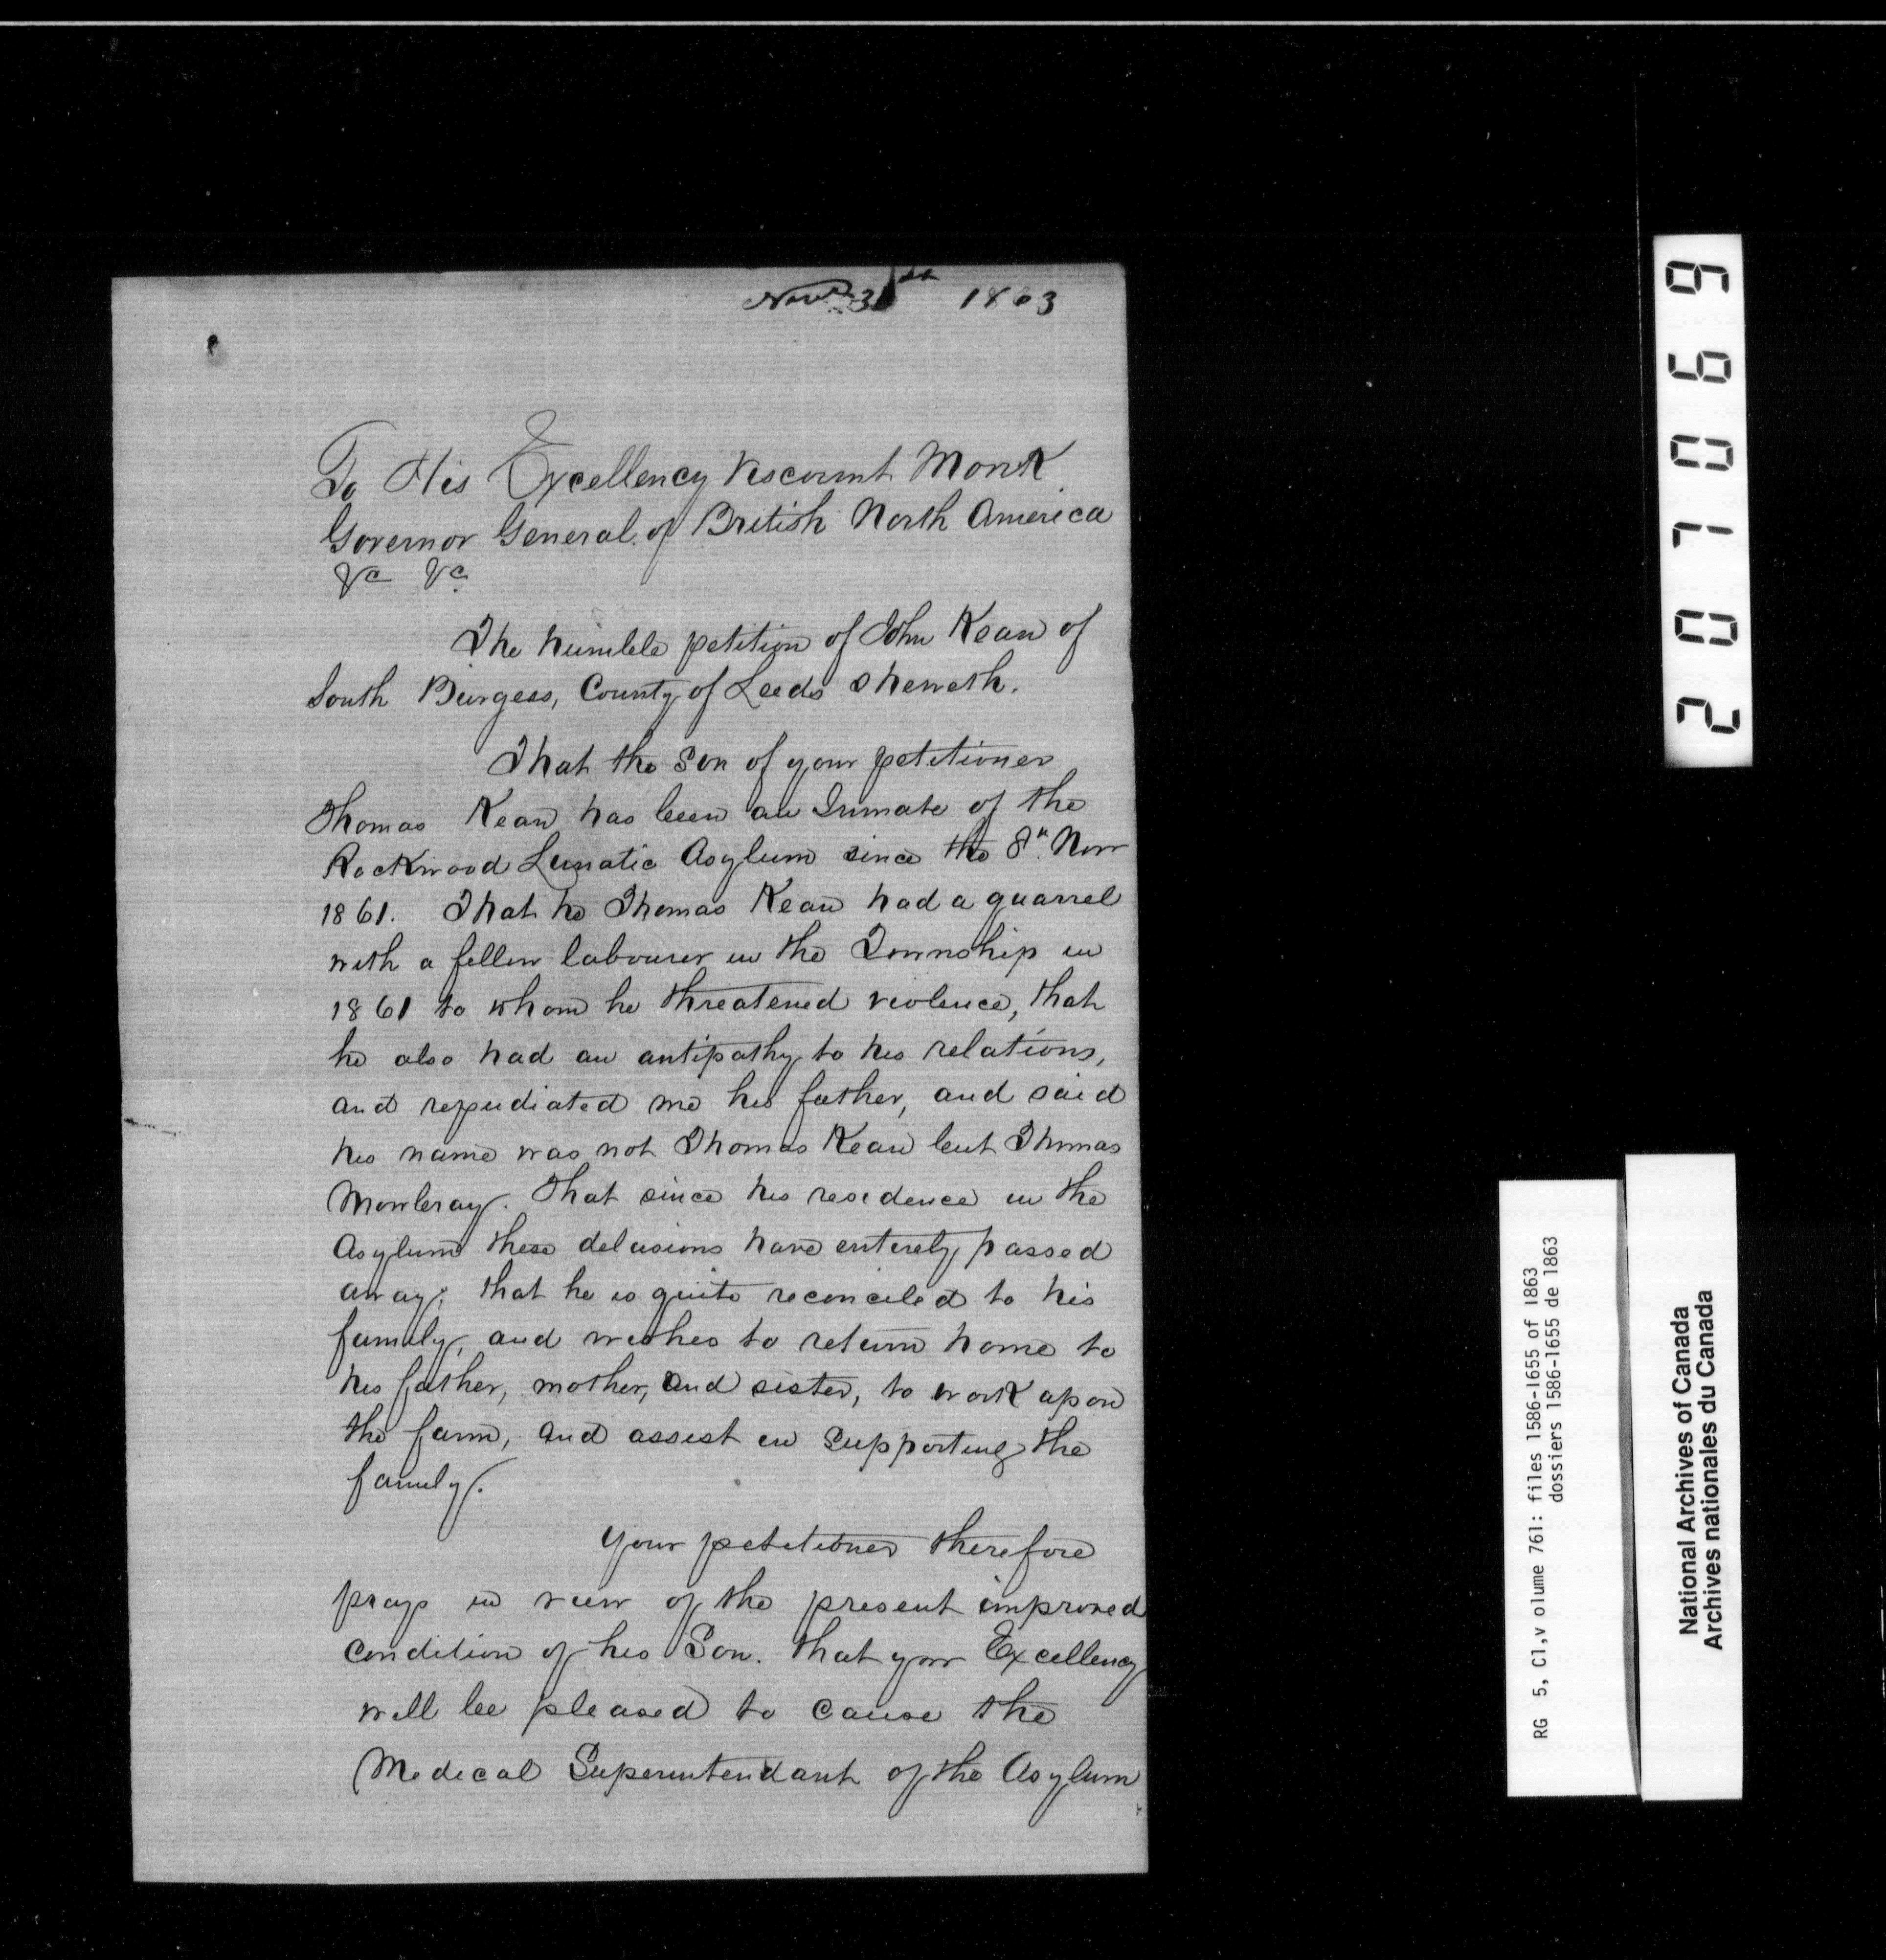 Novr 3 1863
To His Excellency Viscount Monk
Governor General of British North America
&c &c
The humble petition of John Kean of
South Burgess, County of Leeds sheweth.
That the Son of your petitioner
Thomas Kean has been an Inmate of the
Rockwood Lunatic Asylum since the 8th Nov
1861. That he Thomas Kean had a quarrel
with a fellow labourer in the Township in
1861 to whom he threatened violence, that
he also had an antipathy to his relations,
and repudiated me his father, and said
his name was not Thomas Kean but Thomas
Mowbray. That since his residence in the
Asylum these delusions have entirely passed
away; that he is quite reconciled to his
family, and wishes to return home to
his father, mother, and sister, to work upon
the farm, and assist in supporting the
family.
Your petitioner therefore
prays in view of the present improved
condition of his Son. that your Excellency
will be pleased to cause the
Medical Superintendant of the Asylum
207069
RG 5, C1,v olume 761: files 1586-1655 of 1863
dossiers 1586-1655 de 1863
National Archives of Canada
Archives nationales du Canada